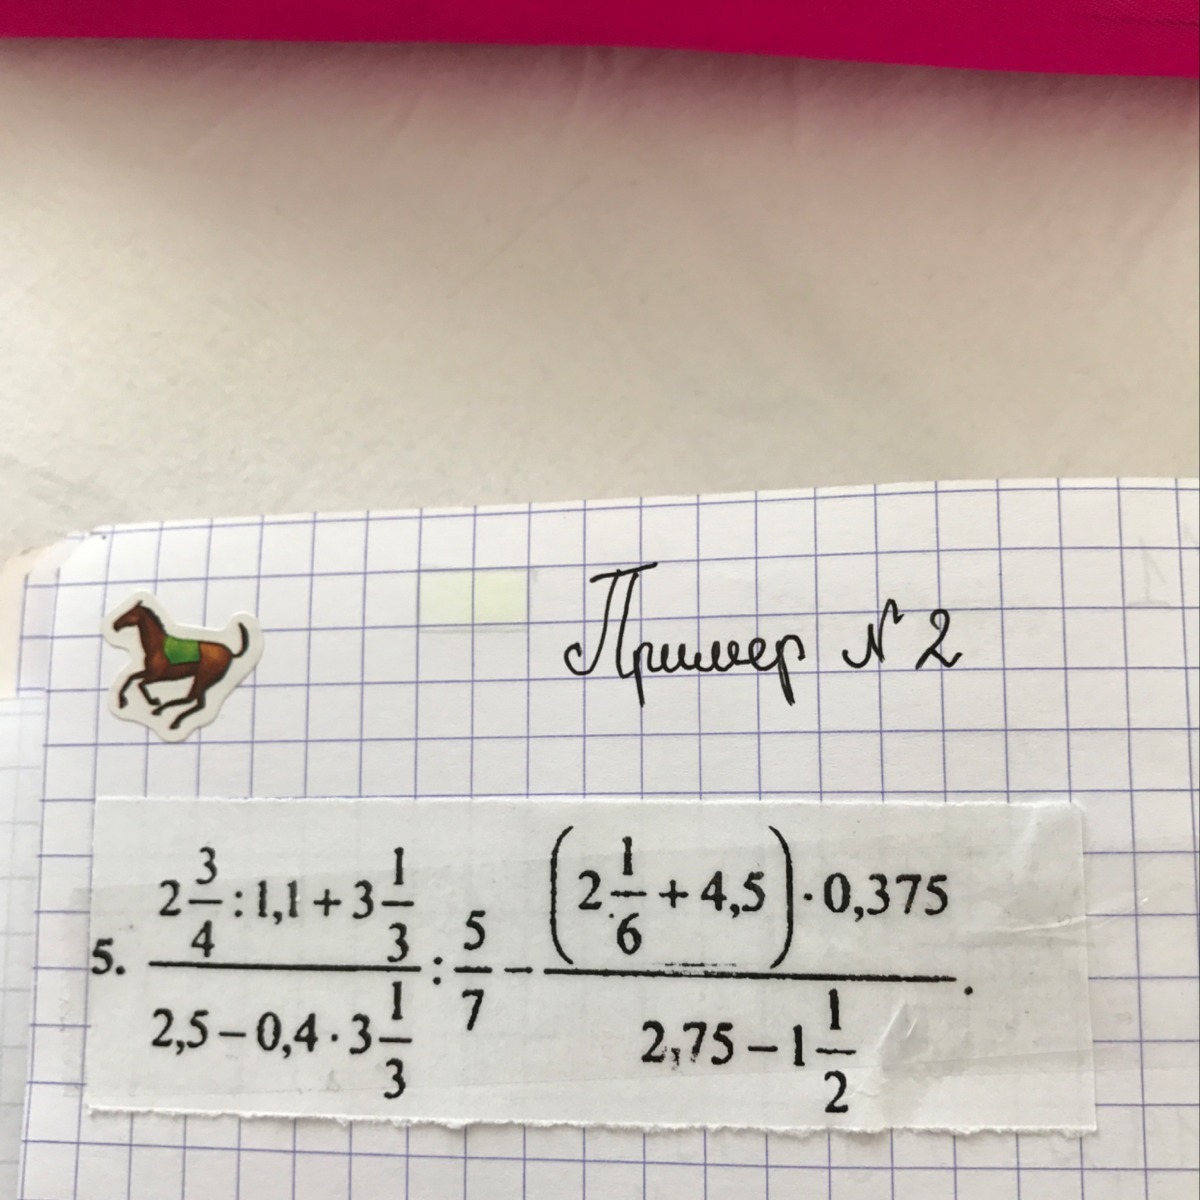 Пример № 2
5. \frac{2\frac{3}{4} : 1,1 + 3\frac{1}{3}}{2,5 - 0,4 \cdot 3\frac{1}{3}} : \frac{5}{7} - \frac{\left(2\frac{1}{6} + 4,5\right) \cdot 0,375}{2,75 - 1\frac{1}{2}}.